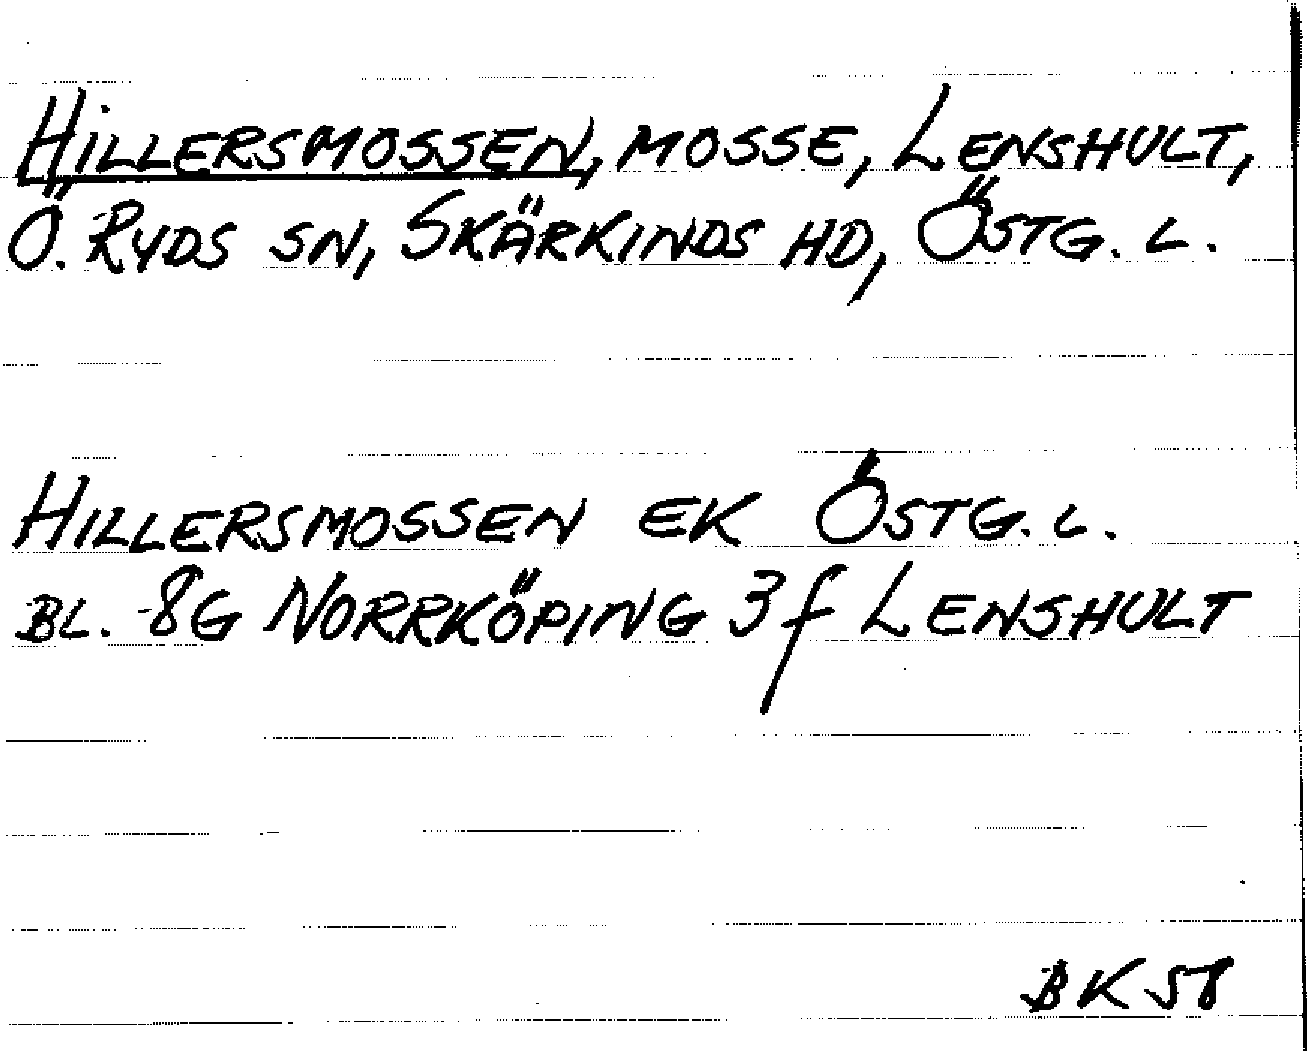 HILLERSMOSSEN, MOSSE, LENSHULT,
Ö. RYDS SN, SKÄRKINDS HD, ÖSTG. L.
HILLERSMOSSEN EK ÖSTG. L.
BL. 8G NORRKÖPING 3f LENSHULT
BK 58